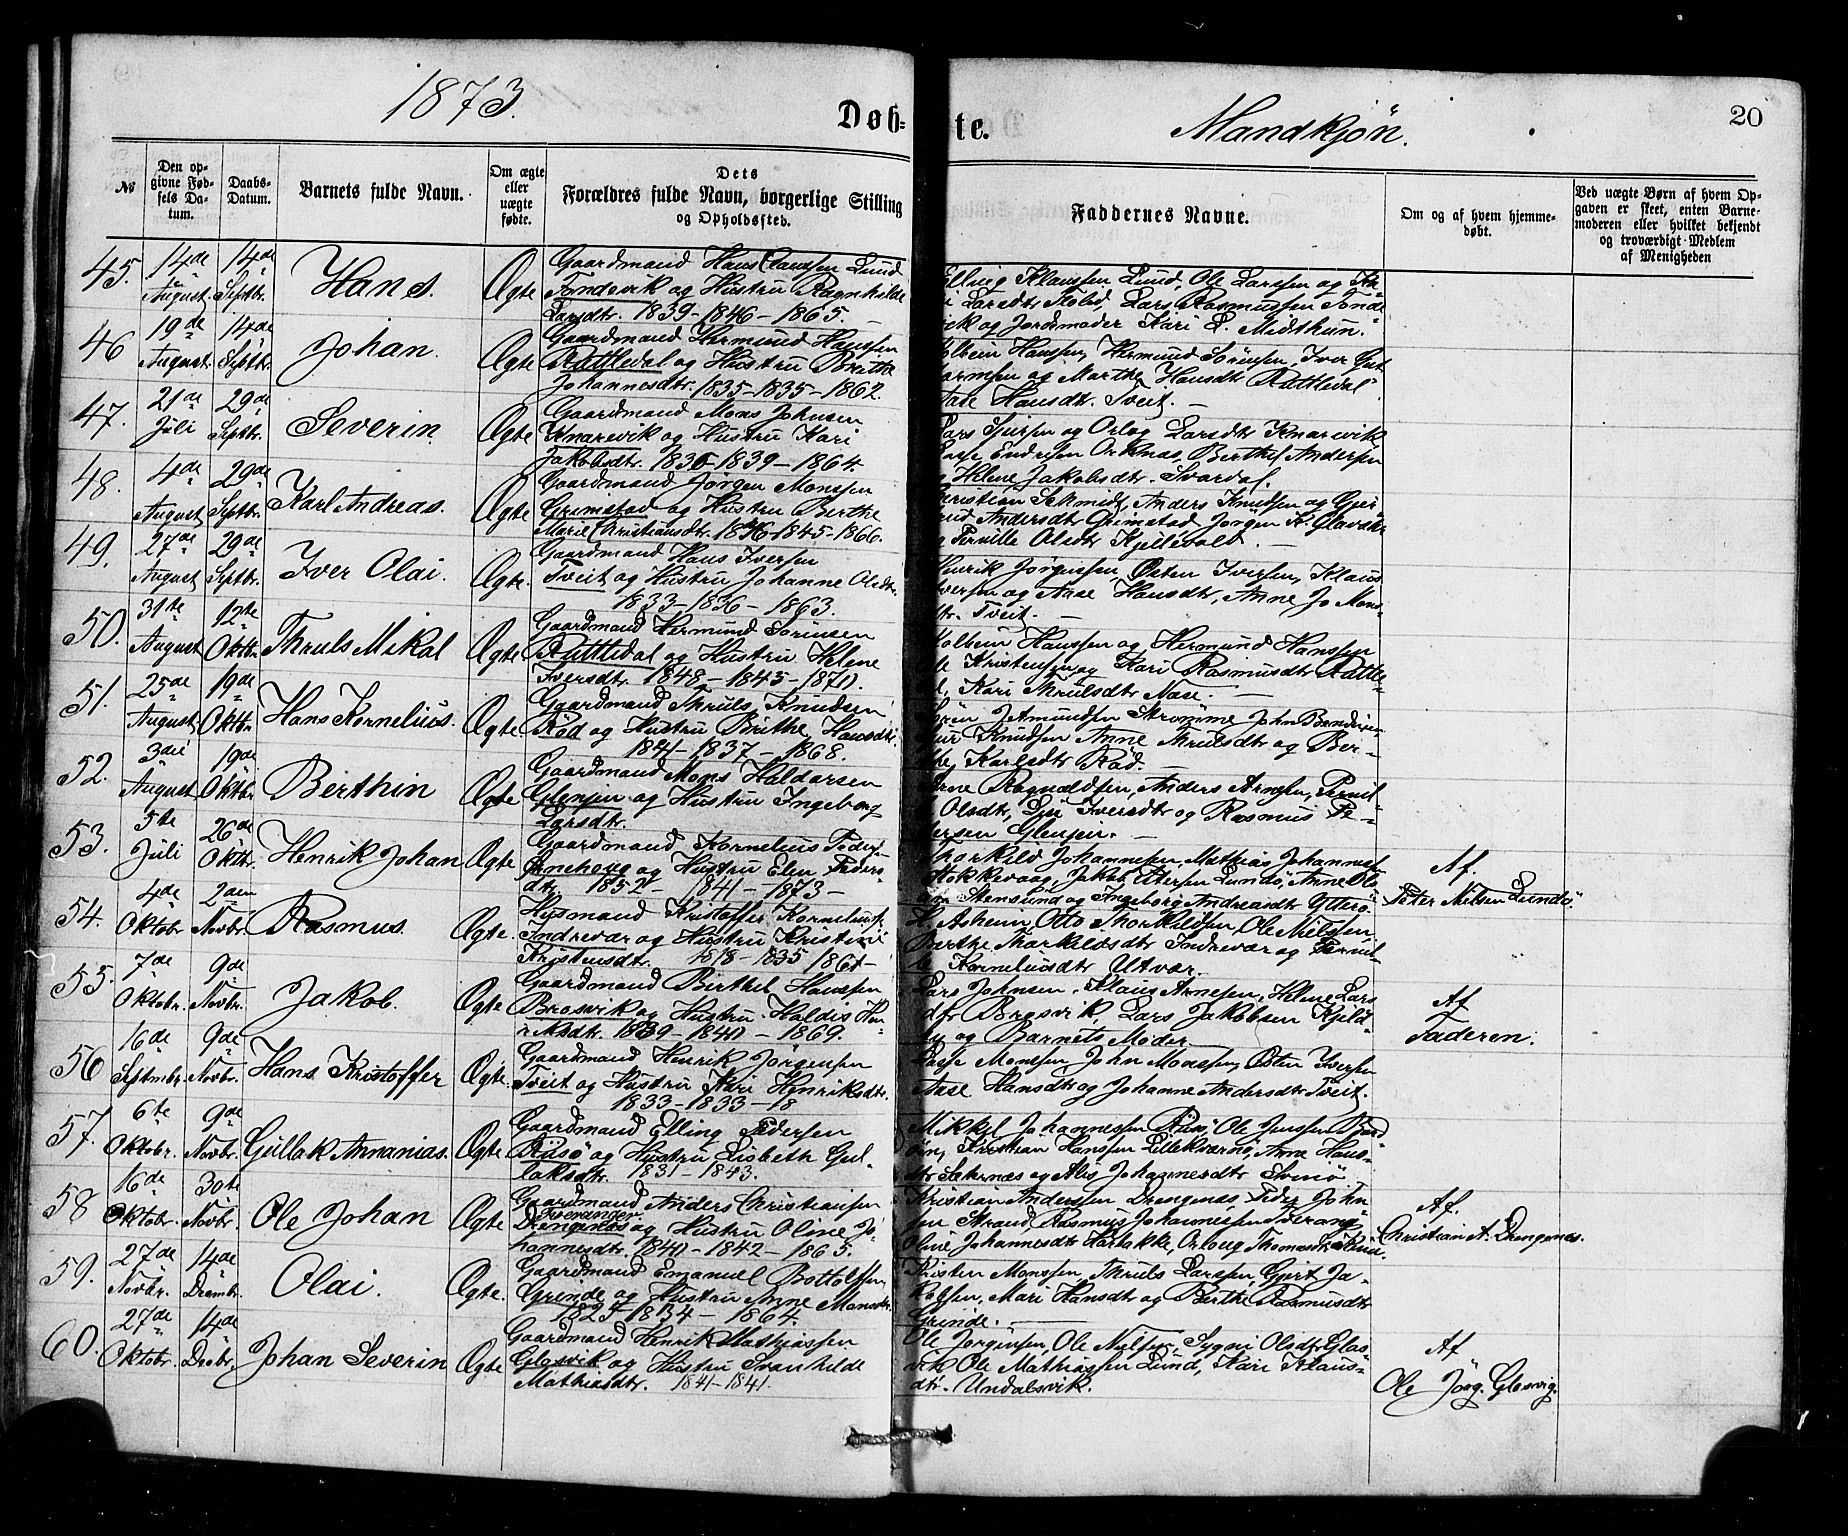 1873.
Døb=
te.
Mandkjøn.
20
No
Den op-
givne Fød-
sels Da-
tum.
Daabs-
Datum.
Barnets fulde Navn.
Om ægte
eller
uægte
fødte.
Dets
Forældres fulde Navn, borgerlige Stilling
og Opholdssted.
Faddernes Navne.
Om og af hvem hjemme-
døbt.
Ved uægte Børn af hvem Op-
gaven er skeet, enten Barne-
moderen eller hvilket bekjendt
og troværdigt Medlem
af Menigheden
45. 14de August. 14de Septbr. Hans. Ægte
Gaardmand Hans Clausen Lund
Tondevik og Hustru Ragnhilde
Larsdtr. 1839-1846-1865.
Elling Klaussen Lund, Ole Larsen og Ka-
ri Larsdtr Lars Rasmussen Tonde
vik og Jordmoder Kari L. Midthun.
46 19de August. 14de Septbr. Johan. Ægte
Gaardmand Hermund Hanssen
Rutledal og Hustru Brithe
Johannesdtr. 1835-1835-1862.
Kolbein Hanssen, Hermund Sørensen, Iver Gut
tormsen og Marthe Hansdtr Rutledal
Aase Hansdtr. Tveit.
47. 21de Juli 29de Septbr. Severin Ægte
Gaardmand Mons Johnsen
Knarevik og Hustru Kari
Jakobsdtr. 1836-1839-1864.
Lars Sjursen og Orlog Larsdtr Knarevik
Lasse Endresen Berthel Andersen
og Helene Jakobsdtr. Svardal.
48. 4de August 29de Septbr. Karl Andreas. Ægte
Gaardmand Jørgen Monssen
Grimstad og Hustru Berthe
Marie Christiansdtr. 1846-1845-1866.
Christian Schmidt, Anders Knudsen og Gjer
trud Andersdtr Grimstad Jørgen K.
og Pernille Olsdtr Kjellevold.
49. 27de August 29de Septbr. Iver Olai. Ægte.
Gaardmand Hans Iversen
Tveit og Hustru Johanne Olsdtr.
1833-1836-1863.
Henrik Jørgensen, Østen Iversen, Klaus
Iversen og Aase Hansdtr, Anne Jo Mons-
dtr. Tveit.
50. 31te August 12te Oktbr. Thruls Mikal Ægte
Gaardmand Hermund Sørensen
Rutledal og Hustru Helene
Iversdtr. 1848-1845-1871.
Kolbein Hanssen og Hermund Hanssen
Ole Kristensen og Kari Rasmusdtr Rutle-
dal, Kari Thrulsdtr Nase.
51. 25de August 19de Oktbr. Hans Kornelius. Ægte
Gaardmand Thruls Knudsen
Råd og Hustru Brithe Hansdtr.
1841-1837-1868.
Strømme John
Knudsen Anne Thrulsdtr og Ber-
the Karlsdtr Råd.
52. 3die August 19de Oktbr. Berthin Ægte
Gaardmand Mons Haldorsen
Glenjen og Hustru Ingeborg
Larsdtr.
Arne Ragnaldsen, Anders Arnesen, Pernil-
le Olsdtr, Lise Iversdtr og Rasmus Pe-
dersen Glenjen.
53. 5te Juli 26de Oktbr. Henrik Johan Ægte
Gaardmand Kornelius Peders
og Hustru Elen Peders-
dtr. 1852-1841-1873-
Thorkild Johannesen, Mathias Johannes
Stokkevaag, Jakob Petersen Lundø, Anne Ols
dtr Stensund og Ingeborg Andreasdtr Ytterø
Af.
Peter Nilsen Lundø
54. 4de Oktobr 2den Novbr. Rasmus. Ægte.
Husmand Kristoffer Kornelius
Indrevær og Hustru Kristine
Kristensdtr. 1818-1835 1861-
H. Askheim, Otto Thorkildsen, Ole Nielsen
Berthe Thorkildsdtr Indrevær og Pernil-
le Korneliusdtr Utvær.
"
55. 7de Oktobr. 9de Novbr. Jakob. Ægte
Gaardmand Birthel Hanssen
Brosvik og Hustru Haldis Hen-
riksdtr. 1839-1841-1869.
Lars Johnsen, Klaus Arnesen, Helene Lars
dtr Brosvik, Lars Jakobsen Kjels
by og Barnets Moder.
Af
Faderen.
56 16de Septmbr. 9de Novbr. Hans Kristoffer Ægte.
Gaardmand Henrik Jørgensen
Tveit og Hustru Kari Henriksdtr.
1833-1833-18
Lasse Monssen, John Monssen, Østen Iversen
Aase Hansdtr og Johanne Andersdtr Tveit.
57. 6te Oktobr. 9de Novbr. Gullak Annanias. Ægte
Gaardmand Elling Pedersen
Råsø og Hustru Lisbeth Gul-
laksdtr. 1831-1843.
Mikkel Johannessen Råsø, Ole Jenssen
Kristian Hanssen Lillekværnø, Anne Hans-
dtr og Alis Johannesdtr Svinø
58 16de Oktobr. 30te Novbr. Ole Johan Ægte
Gaardmand Anders Christiansen
Tveranger
Drengenæs og Hustru Oline Jo-
hannesdtr. 1841-1842-1865.
Kristian Anderssen Drengenæs, Peder John
sen Strand, Rasmus Johannessen Tverang
Oline Johannesdtr Hardbakke, Orloug Thomasdtr
Af.
Christian A. Drengenæs.
59. 27de Novbr. 14de Dcembr. Olai. Ægte.
Gaardmand Emanuel Bottolfsen
Grende og Hustru Anne Monsdtr.
1825-1834-1864.
Kristen Monssen, Thruls Larssen, Gjert Ja-
kobsen, Mari Hansdtr og Berthe Rasmusdtr
Grinde.
60. 27de Oktobr. 14de Dcbr. Johan Severin Ægte
Gaardmand Henrik Mathiassen
Glosvik og Hustru Svanhilde
Mathiasdtr. 1841-1841.
Ole Jørgensen, Ole Nilsen, Sygni Olsdtr Glos
vik Ole Mathiassen Lund, Kari Klaus-
dtr. Undalsvik.
Af
Ole Jørg. Glosvig.